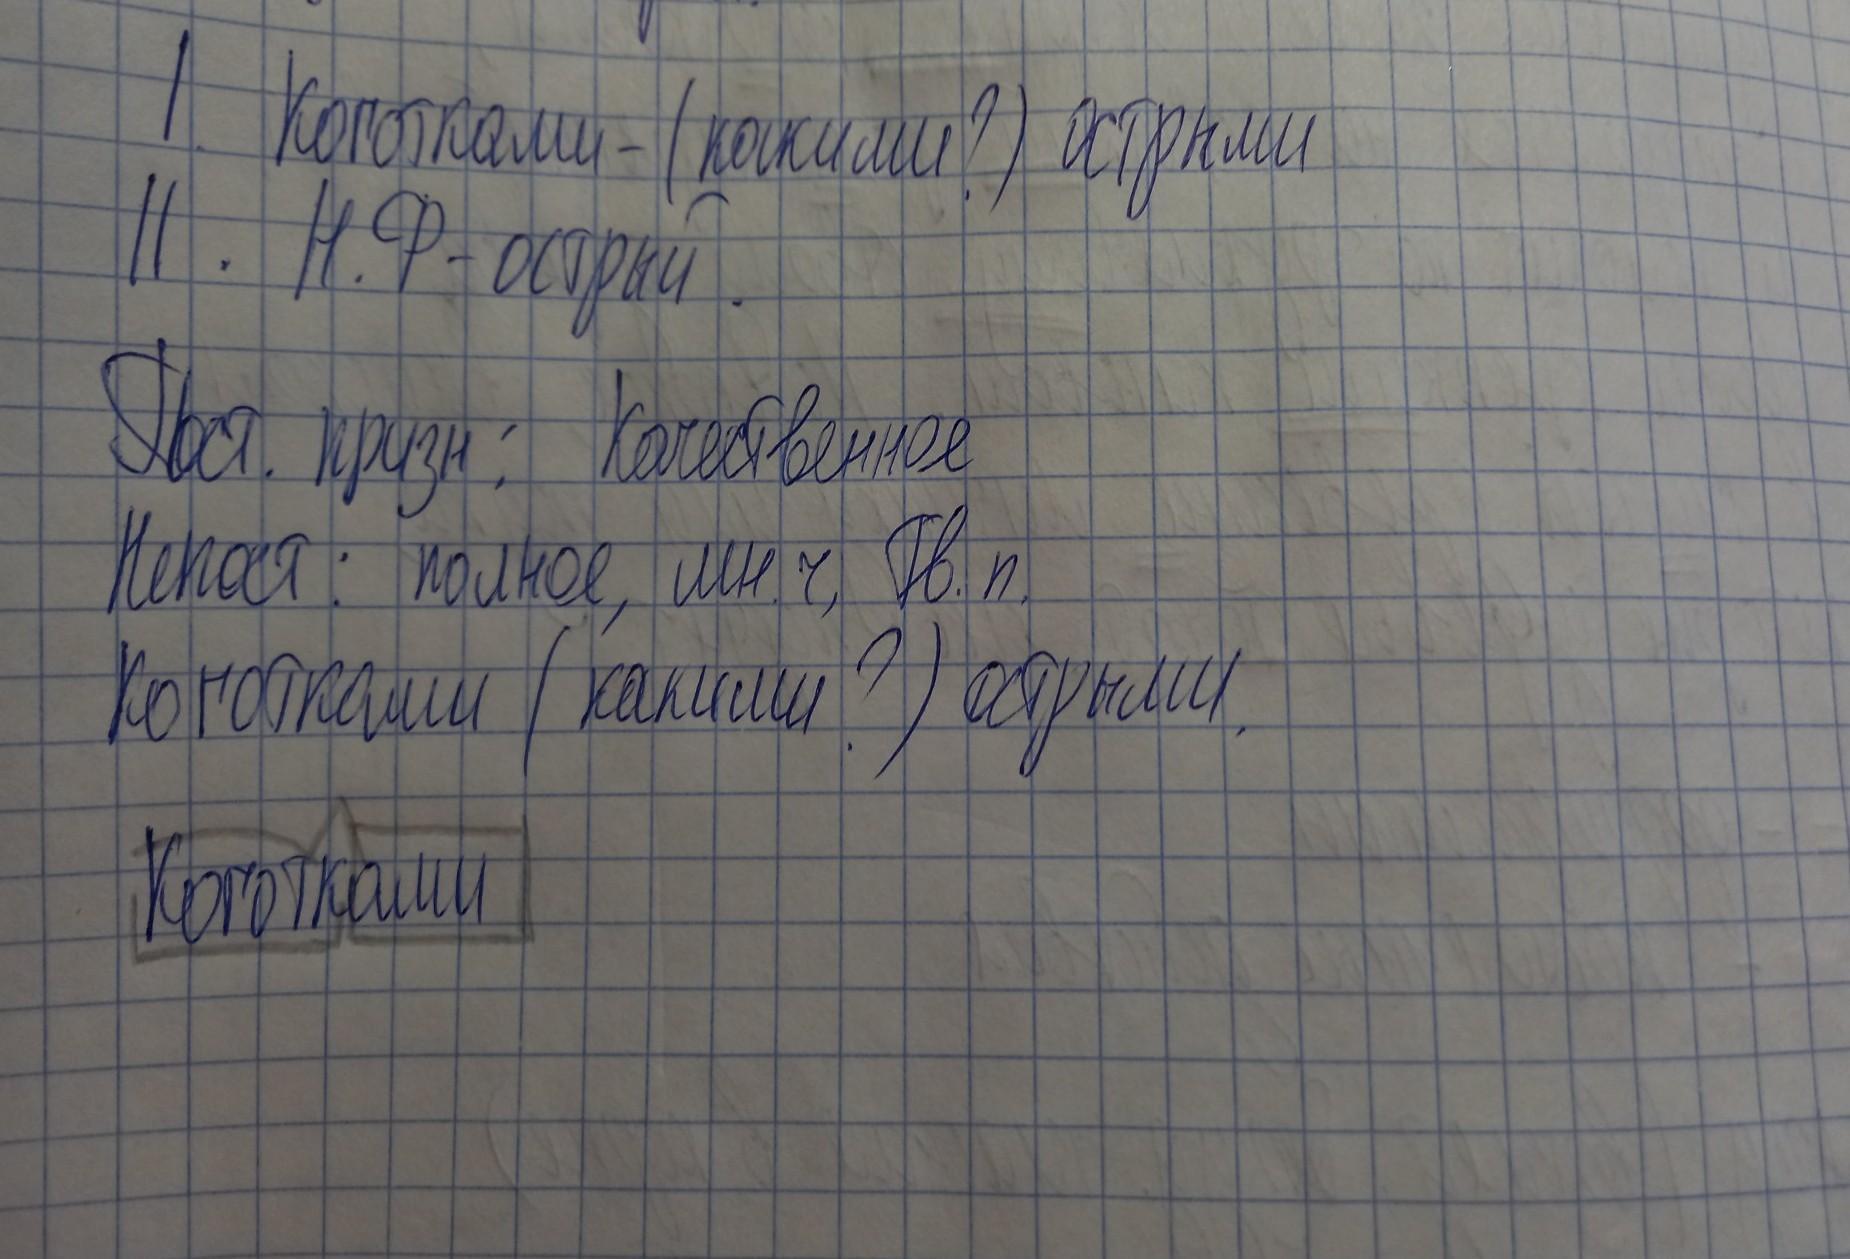 I. Коготками - (какими?) острыми
II. Н.Ф - острый.
Пост. призн: Качественное
Непост: полное, мн.ч, Тв. п.
Коготками (какими?) острыми.
Коготками